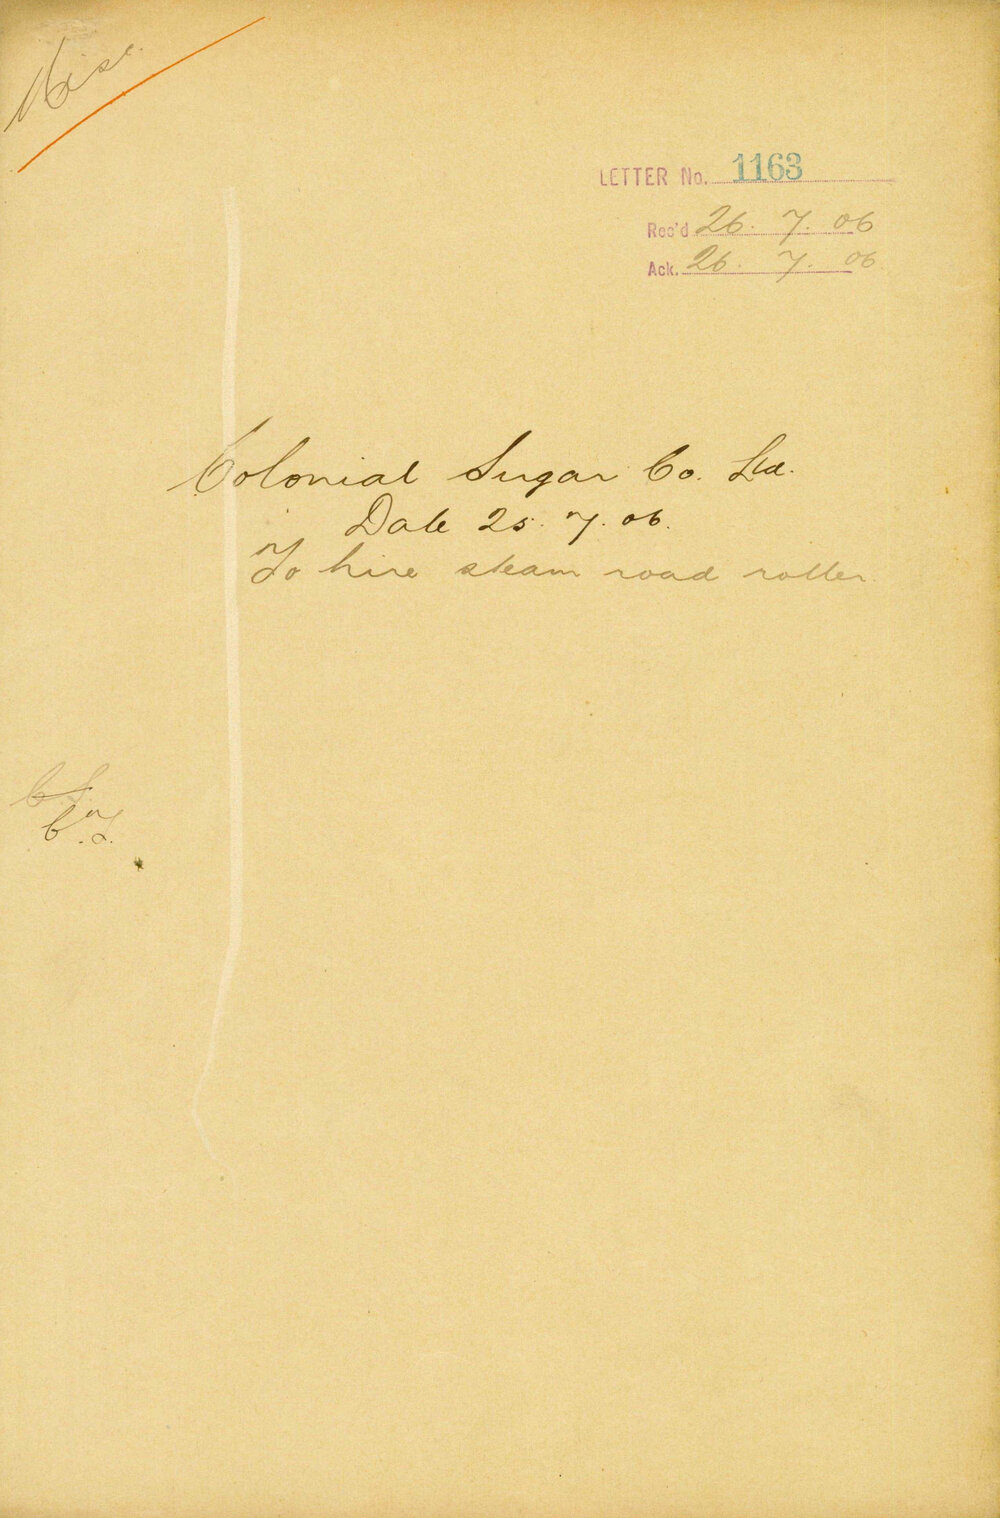 Misc.
LETTER No. 1163
Rec'd 26. 7. 06
Ack. 26. 7. 06
Colonial Sugar Co. Ltd.
Date 25. 7. 06.
To hire steam road roller.